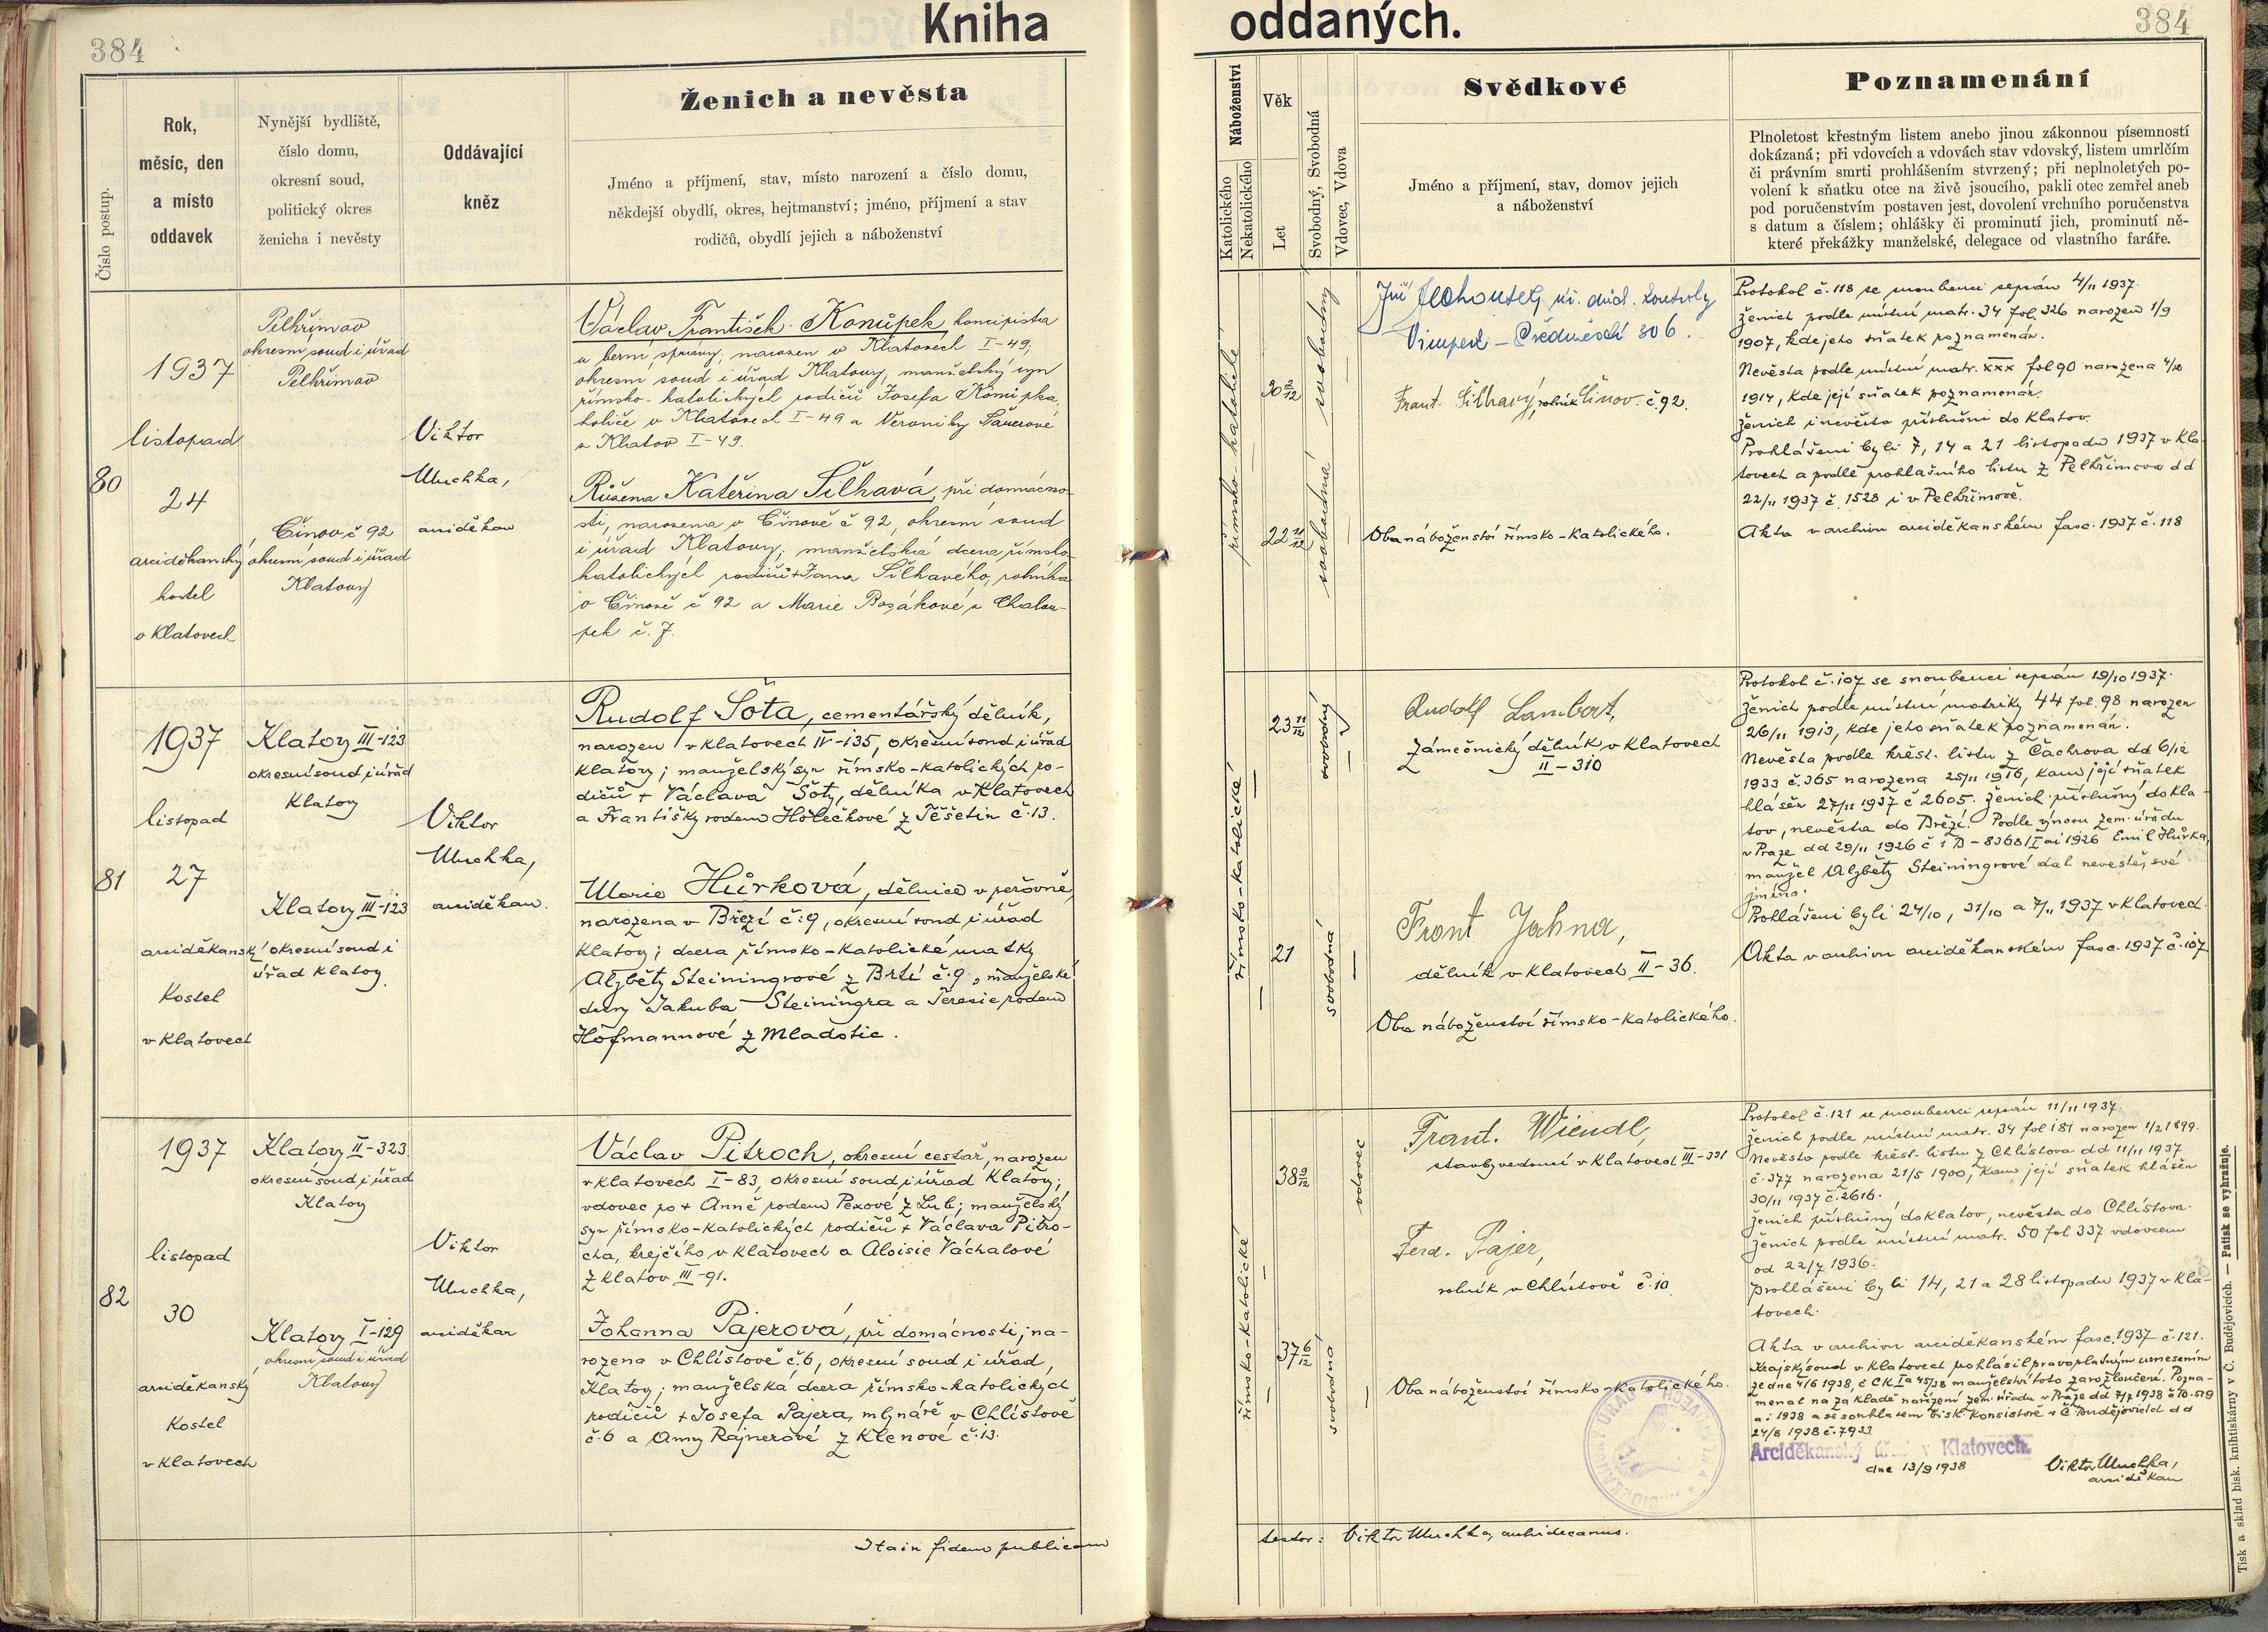 Kniha oddaných.
384
384
Číslo postup.
Rok,
měsíc, den
a místo
oddavek
Nynější bydliště,
číslo domu,
okresní soud,
politický okres
ženicha i nevěsty
Oddávající
kněz
Ženich a nevěsta
Jméno a příjmení, stav, místo narození a číslo domu,
někdejší obydlí, okres, hejtmanství; jméno, příjmení a stav
rodičů, obydlí jejich a náboženství
Náboženství
Katolického
Nekatolického
Věk
Let
Svobodný, Svobodná
Vdovec, Vdova
Svědkové
Jméno a příjmení, stav, domov jejich
a náboženství
Poznamenání
Plnoletost křestným listem anebo jinou zákonnou písemností
dokázaná; při vdovcích a vdovách stav vdovský, listem umrlčím
či právním smrti prohlášením stvrzený; při neplnoletých po-
volení k sňatku otce na živě jsoucího, pakli otec zemřel aneb
pod poručenstvím postaven jest, dovolení vrchního poručenstva
s datum a číslem; ohlášky či prominutí jich, prominutí ně-
které překážky manželské, delegace od vlastního faráře.
80
1937
listopad
24
arciděkanský
kostel
v Klatovech
Pelhřimov
okresní soud i úřad
Pelhřimov
Činov č 92
okresní soud i úřad
Klatovy
Viktor
arciděkan
Václav František Konůpek, koncipista
u berní správy, narozen v Klatovech I-49,
okresní soud i úřad Klatovy, manželský syn
římsko-katolických rodičů Josefa Konůpka
holiče v Klatovech I-49 a Veroniky
z Klatov I-49.
Růžena Kateřina Šilhavá, při domácno-
sti, narozena v Činově č 92, okresní soud
i úřad Klatovy; manželská dcera římsko-
katolických rodičů + Jana Šilhavého, rolníka
v Činově č 92 a Marie z Chalou-
pek č. 7.
římsko-katolické
30 2/12
22 11/12
svobodný
svobodná
Vimperk – 306.
Frant. Šilhavý, rolník Činov č. 92.
Oba náboženství římsko-katolického.
Protokol č. 118 se snoubenci sepsán 4/11 1937.
Ženich podle místní matr. 34 fol. 326 narozen 1/9
1907, kde jeho sňatek poznamenán.
Nevěsta podle místní matr. XXX fol 90 narozena
1914, kde její sňatek poznamenán.
Ženich i nevěsta příslušní do Klatov.
Prohlášeni byli 7, 14 a 21 listopadu 1937 v Kla-
tovech a podle prohlašního listu z Pelhřimova dd
22/11 1937 č. 1528 i v Pelhřimově.
Akta v archivu arciděkanském fasc. 1937 č. 118
81
1937
listopad
27
arciděkanský
kostel
v Klatovech
Klatovy III-123
okresní soud i úřad
Klatovy
Klatovy III-123
okresní soud i
úřad Klatovy.
Viktor
arciděkan.
Rudolf Šota, cementářský dělník,
narozen v Klatovech IV-135, okresní soud i úřad
Klatovy; manželský syn římsko-katolických ro-
dičů + Václava Šoty, dělníka v Klatovech
a Františky rodem Holečkové z Těšetin č. 13.
Marie Hůrková, dělnice v peřovně,
narozena v Březí č. 9, okresní soud i úřad
Klatovy; dcera římsko-katolické matky
Alžběty Steiningrové z Brtí č. 9, manželské
dcery Jakuba Steiningra a Terezie rodem
Hofmannové z Mladotic.
římsko-katolické
23 11/12
21
svobodný
svobodná
Rudolf Lambert,
zámečnický dělník v Klatovech
II-310
Frant Jahna,
dělník v Klatovech II-36.
Oba náboženství římsko-katolického.
Protokol č. 107 se snoubenci sepsán 19/10 1937.
Ženich podle místní matriky 44 fol. 98 narozen
26/11 1913, kde jeho sňatek poznamenán.
Nevěsta podle křest. listu z Čachrova dd 6/12
1933 č. 365 narozena 25/11 1916, kam její sňatek
hlášen 27/11 1937 č 2605. Ženich příslušný do Kla-
tov, nevěsta do Březí. Podle výnosu zem. úřadu
v Praze dd 29/11 1926 Emil Hůrka,
manžel Alžběty Steiningrové dal nevěstě své
jméno.
Prohlášeni byli 24/10, 31/10 a 7/11 1937 v Klatovech.
Akta v archivu arciděkanském fasc. 1937 č. 107
82
1937
listopad
30
arciděkanský
kostel
v Klatovech
Klatovy II-323.
okresní soud i úřad
Klatovy
Klatovy I-129
okresní soud i úřad
Klatovy
Viktor
arciděkan
Václav Pitroch, okresní cestář, narozen
v Klatovech I-83, okresní soud i úřad Klatovy;
vdovec po + Anně rodem Pexové z Lub; manželský
syn římsko-katolických rodičů + Václava Pitro-
cha, krejčího v Klatovech a Aloisie Váchalové
z Klatov III-91.
Johanna Pajerová, při domácnosti, na-
rozena v Chlístově č. 6, okresní soud i úřad
Klatovy; manželská dcera římsko-katolických
rodičů + Josefa Pajera, mlynáře v Chlístově
č. 6 a Anny Rajnerové z Klenové č. 13.
římsko-katolické
38 9/12
37 6/12
vdovec
svobodná
Frant. Wiendl,
stavbyvedoucí v Klatovech III-331
Ferd. Pajer,
rolník v Chlístově č. 10.
Oba náboženství římsko-katolického.
Protokol č. 121 se snoubenci sepsán 11/11 1937.
Ženich podle místní matr. 34 fol 181 narozen 1/2 1899.
Nevěsta podle křest. listu z Chlístova dd 11/11 1937
č. 377 narozena 21/5 1900, kam její sňatek hlášen
30/11 1937 č. 2616.
Ženich příslušný do Klatov, nevěsta do Chlístova.
Ženich podle místní matr. 50 fol 337 vdovcem
od 22/7 1936.
Prohlášeni byli 14, 21 a 28 listopadu 1937 v Kla-
tovech.
Akta v archivu arciděkanském fasc. 1937 č. 121.
Krajský soud v Klatovech prohlásil pravoplatným usnesením
ze dne 4/6 1938 č CK Ia 45/38 manželství toto za rozloučené. Pozna-
menal na základě nařízení zem. úřadu v Praze dd 7/7 1938
a se souhlasem bisk. konsistoře v Č. Budějovicích dd
24/8 1938 č. 7933
Arciděkanský úřad v Klatovech.
dne 13/9 1938
Viktor
arciděkan
Ita in fidem publicam
testor: Viktor archidecanus.
Tisk a sklad bisk. knihtiskárny v Č. Budějovicích. — Patisk se vyhražuje.